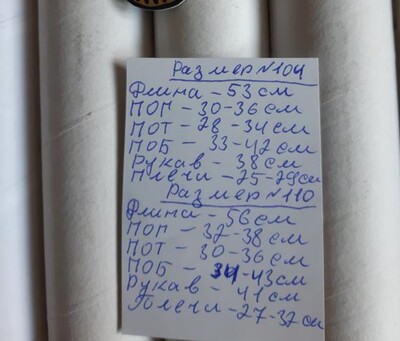 Размер №104
Длина - 53 см
ПОГ - 30-36 см
ПОТ - 28 - 34 см
ПОБ - 33-42 см
Рукав - 38 см
Плечи - 25-29 см
Размер №110
Длина - 56 см
ПОГ - 32-38 см
ПОТ - 30-36 см
ПОБ - 34-43 см
Рукав - 41 см
Плечи - 27-32 см